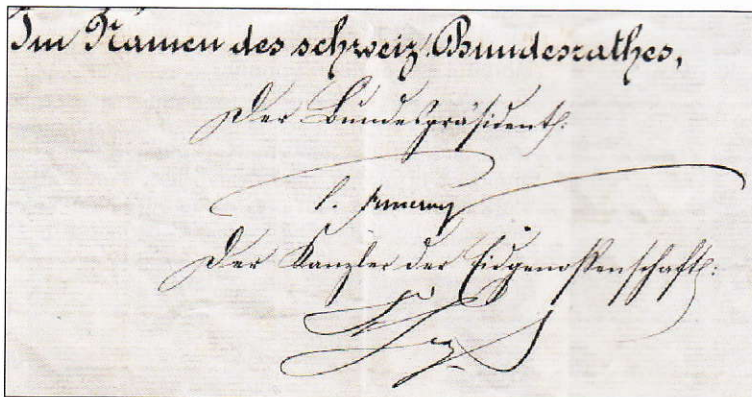 Im Namen des schweiz. Bundesrathes,
Der Bundespräsident:
Der Kanzler der Eidgenossenschaft: